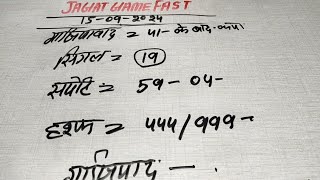 JAGAT GAME FAST
15-09-2024
गाजियाबाद = 41- के बाद
सिंगल = 19
सपोर्ट = 59-04-
हरूफ = 444/999-
गाजियाबाद -.